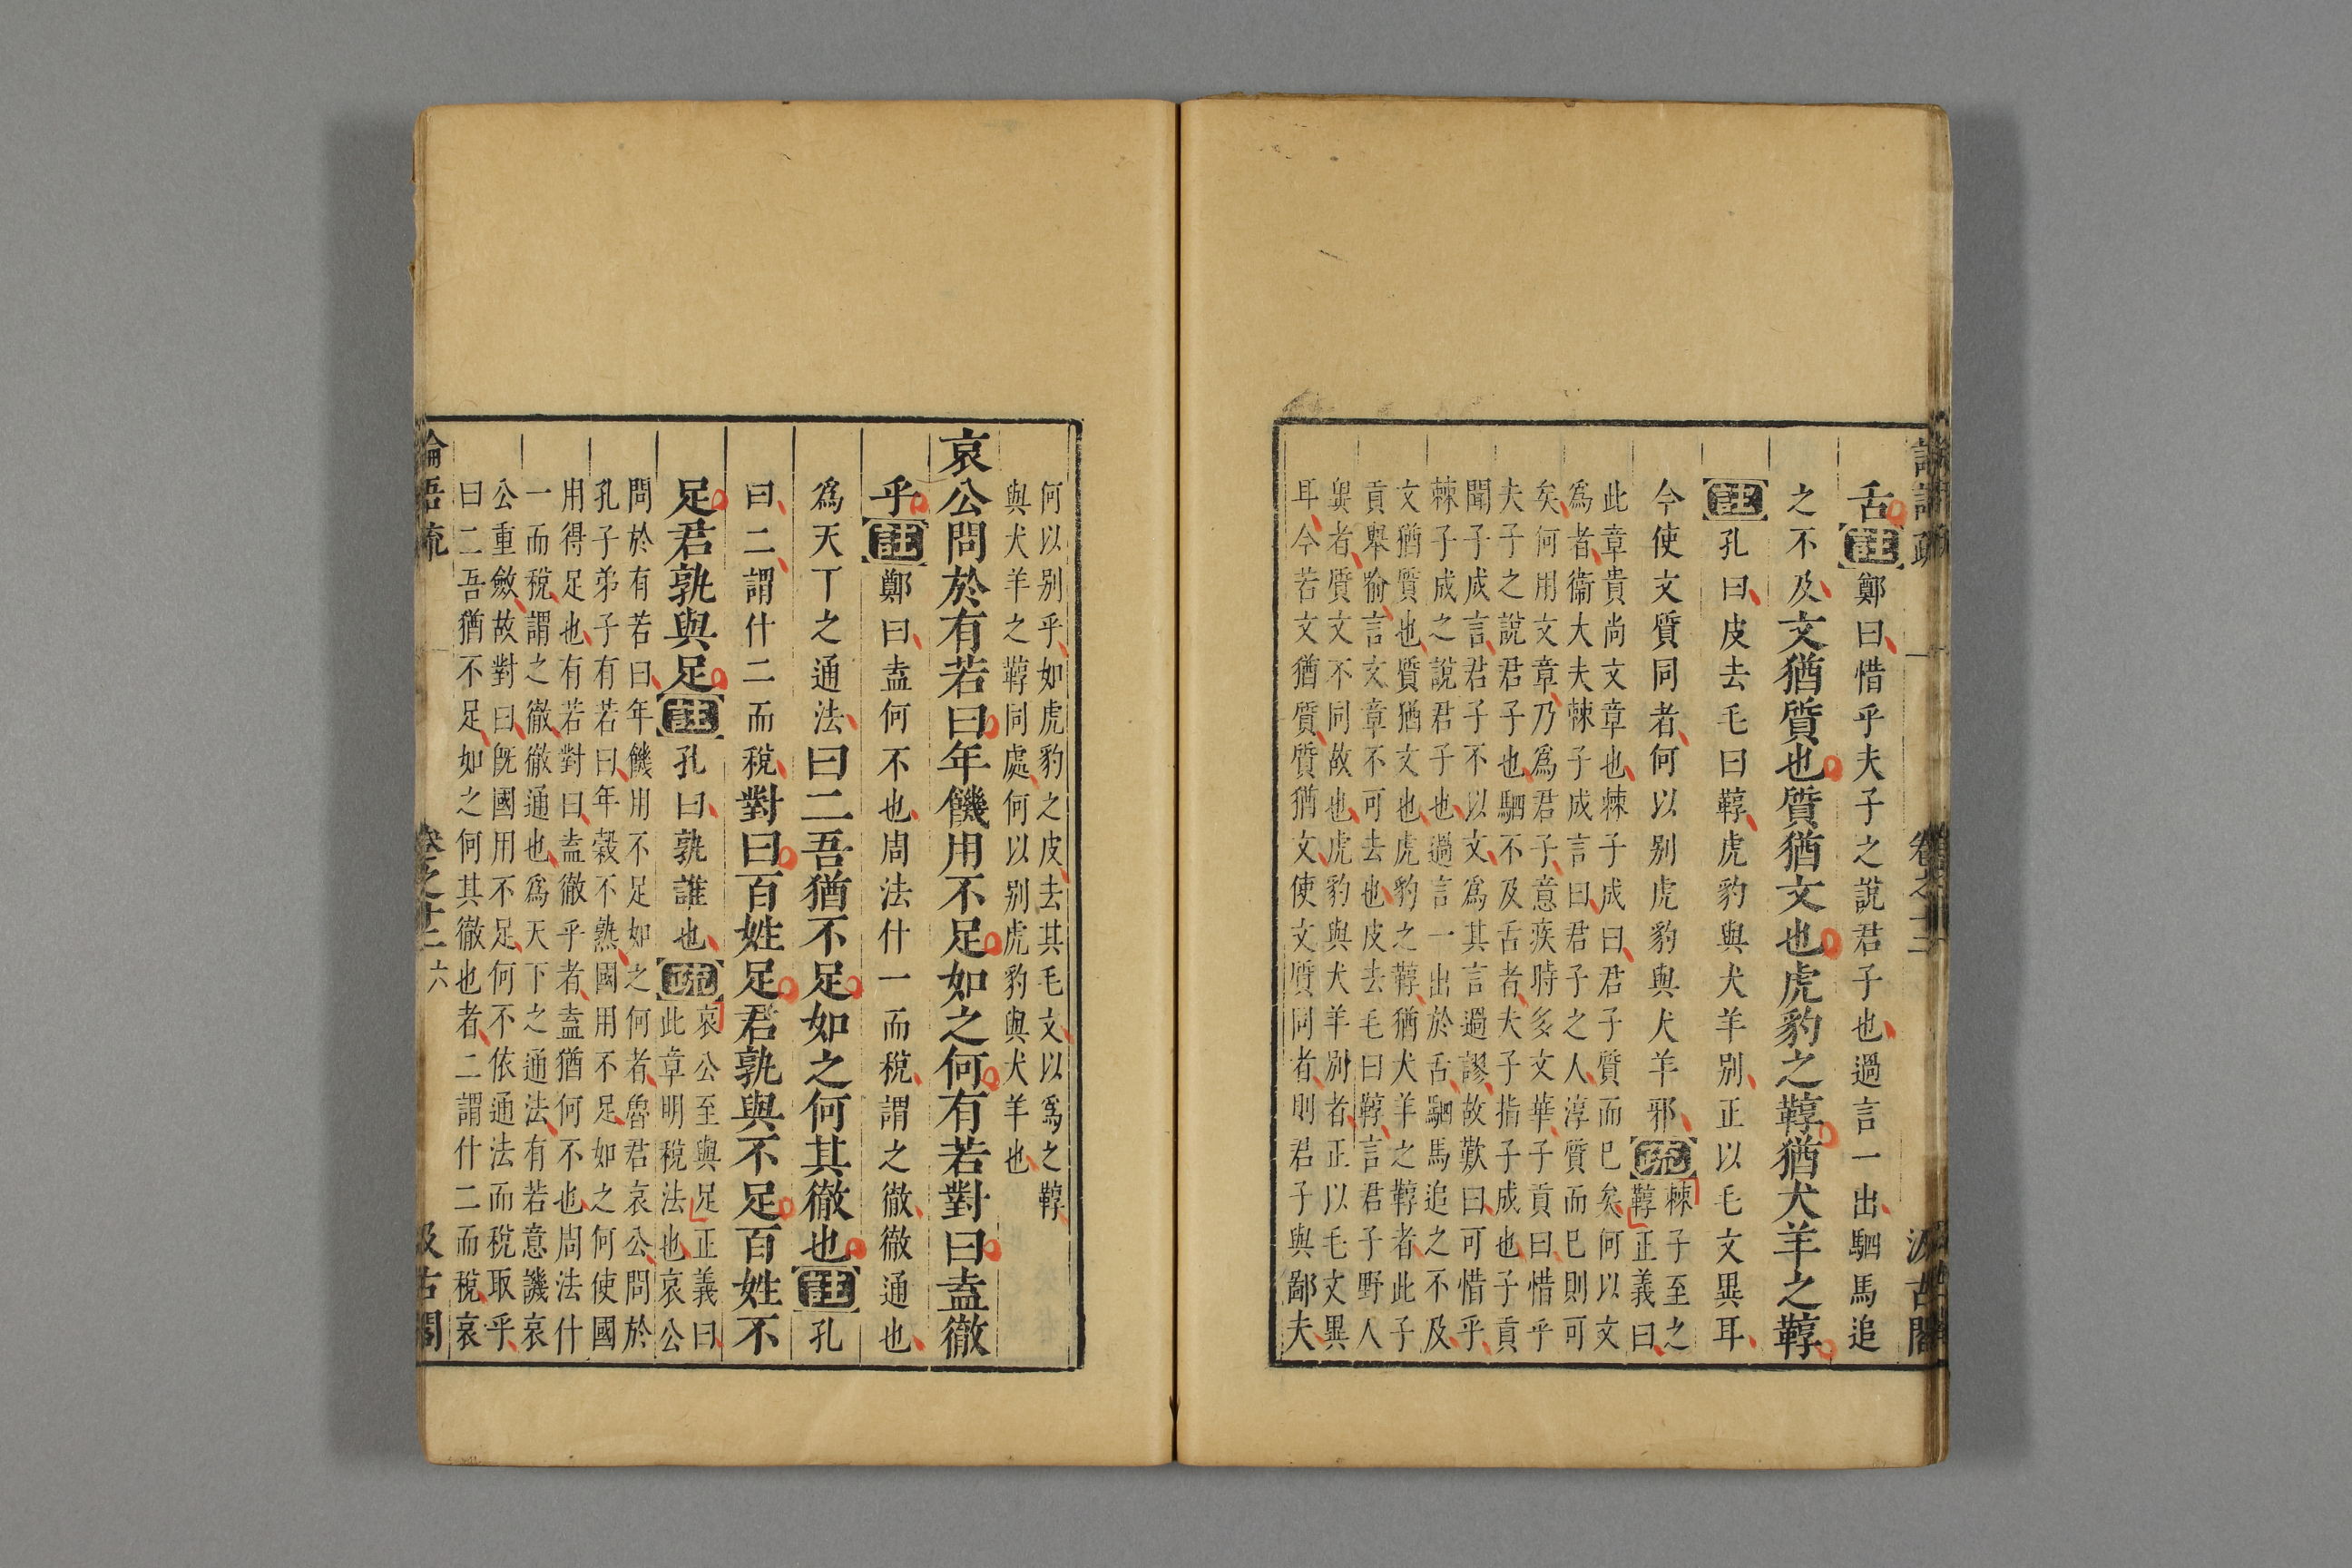 舌註鄭曰惜乎夫子之說君子也過言一出駟馬追
之不及文猶質也質猶文也虎豹之鞟猶犬羊之鞟
註孔曰皮去毛曰鞟虎豹與犬羊別正以毛文異耳
今使文質同者何以别虎豹與犬羊邪疏棘子至之
鞟正義曰
此章貴尚文章也棘子成曰君子質而已矣何以文
爲者衞大夫棘子成言曰君子之人淳質而已則可
矣何用文章乃爲君子意疾時多文華子貢曰惜乎
夫子之說君子也駟不及舌者夫子指子成也子貢
聞子成言君子不以文爲其言過謬故歎曰可惜乎
棘子成之說君子也過言一出於舌駟馬追之不及
文猶質也質猶文也虎豹之鞟猶犬羊之鞟者此子
貢舉喻言文章不可去也皮去毛曰鞟言君子野人
異者質文不同故也虎豹與犬羊別者正以毛文異
耳今若文猶質質猶文使文質同者則君子與鄙夫
何以别乎如虎豹之皮去其毛文以爲之鞟
與犬羊之鞟同處何以别虎豹與犬羊也
哀公問於有若曰年饑用不足如之何有若對曰盍徹
乎註鄭曰盍何不也周法什一而稅謂之徹徹通也
爲天丅之通法曰二吾猶不足如之何其徹也註孔
曰二謂什二而稅對曰百姓足君孰與不足百姓不
足君孰與足註孔曰孰誰也疏哀公至與足正義曰
此章明稅法也哀公
問於有若曰年饑用不足如之何者魯君哀公問於
孔子弟子有若曰年穀不熟國用不足如之何使國
用得足也有若對曰盍徹乎者盍猶何不也周法什
一而稅謂之徹徹通也爲天下之通法有若意譏哀
公重斂故對曰旣國用不足何不依通法而稅取乎
曰二吾猶不足如之何其徹也者二謂什二而稅哀
論語疏 卷之十二 六 汲古閣